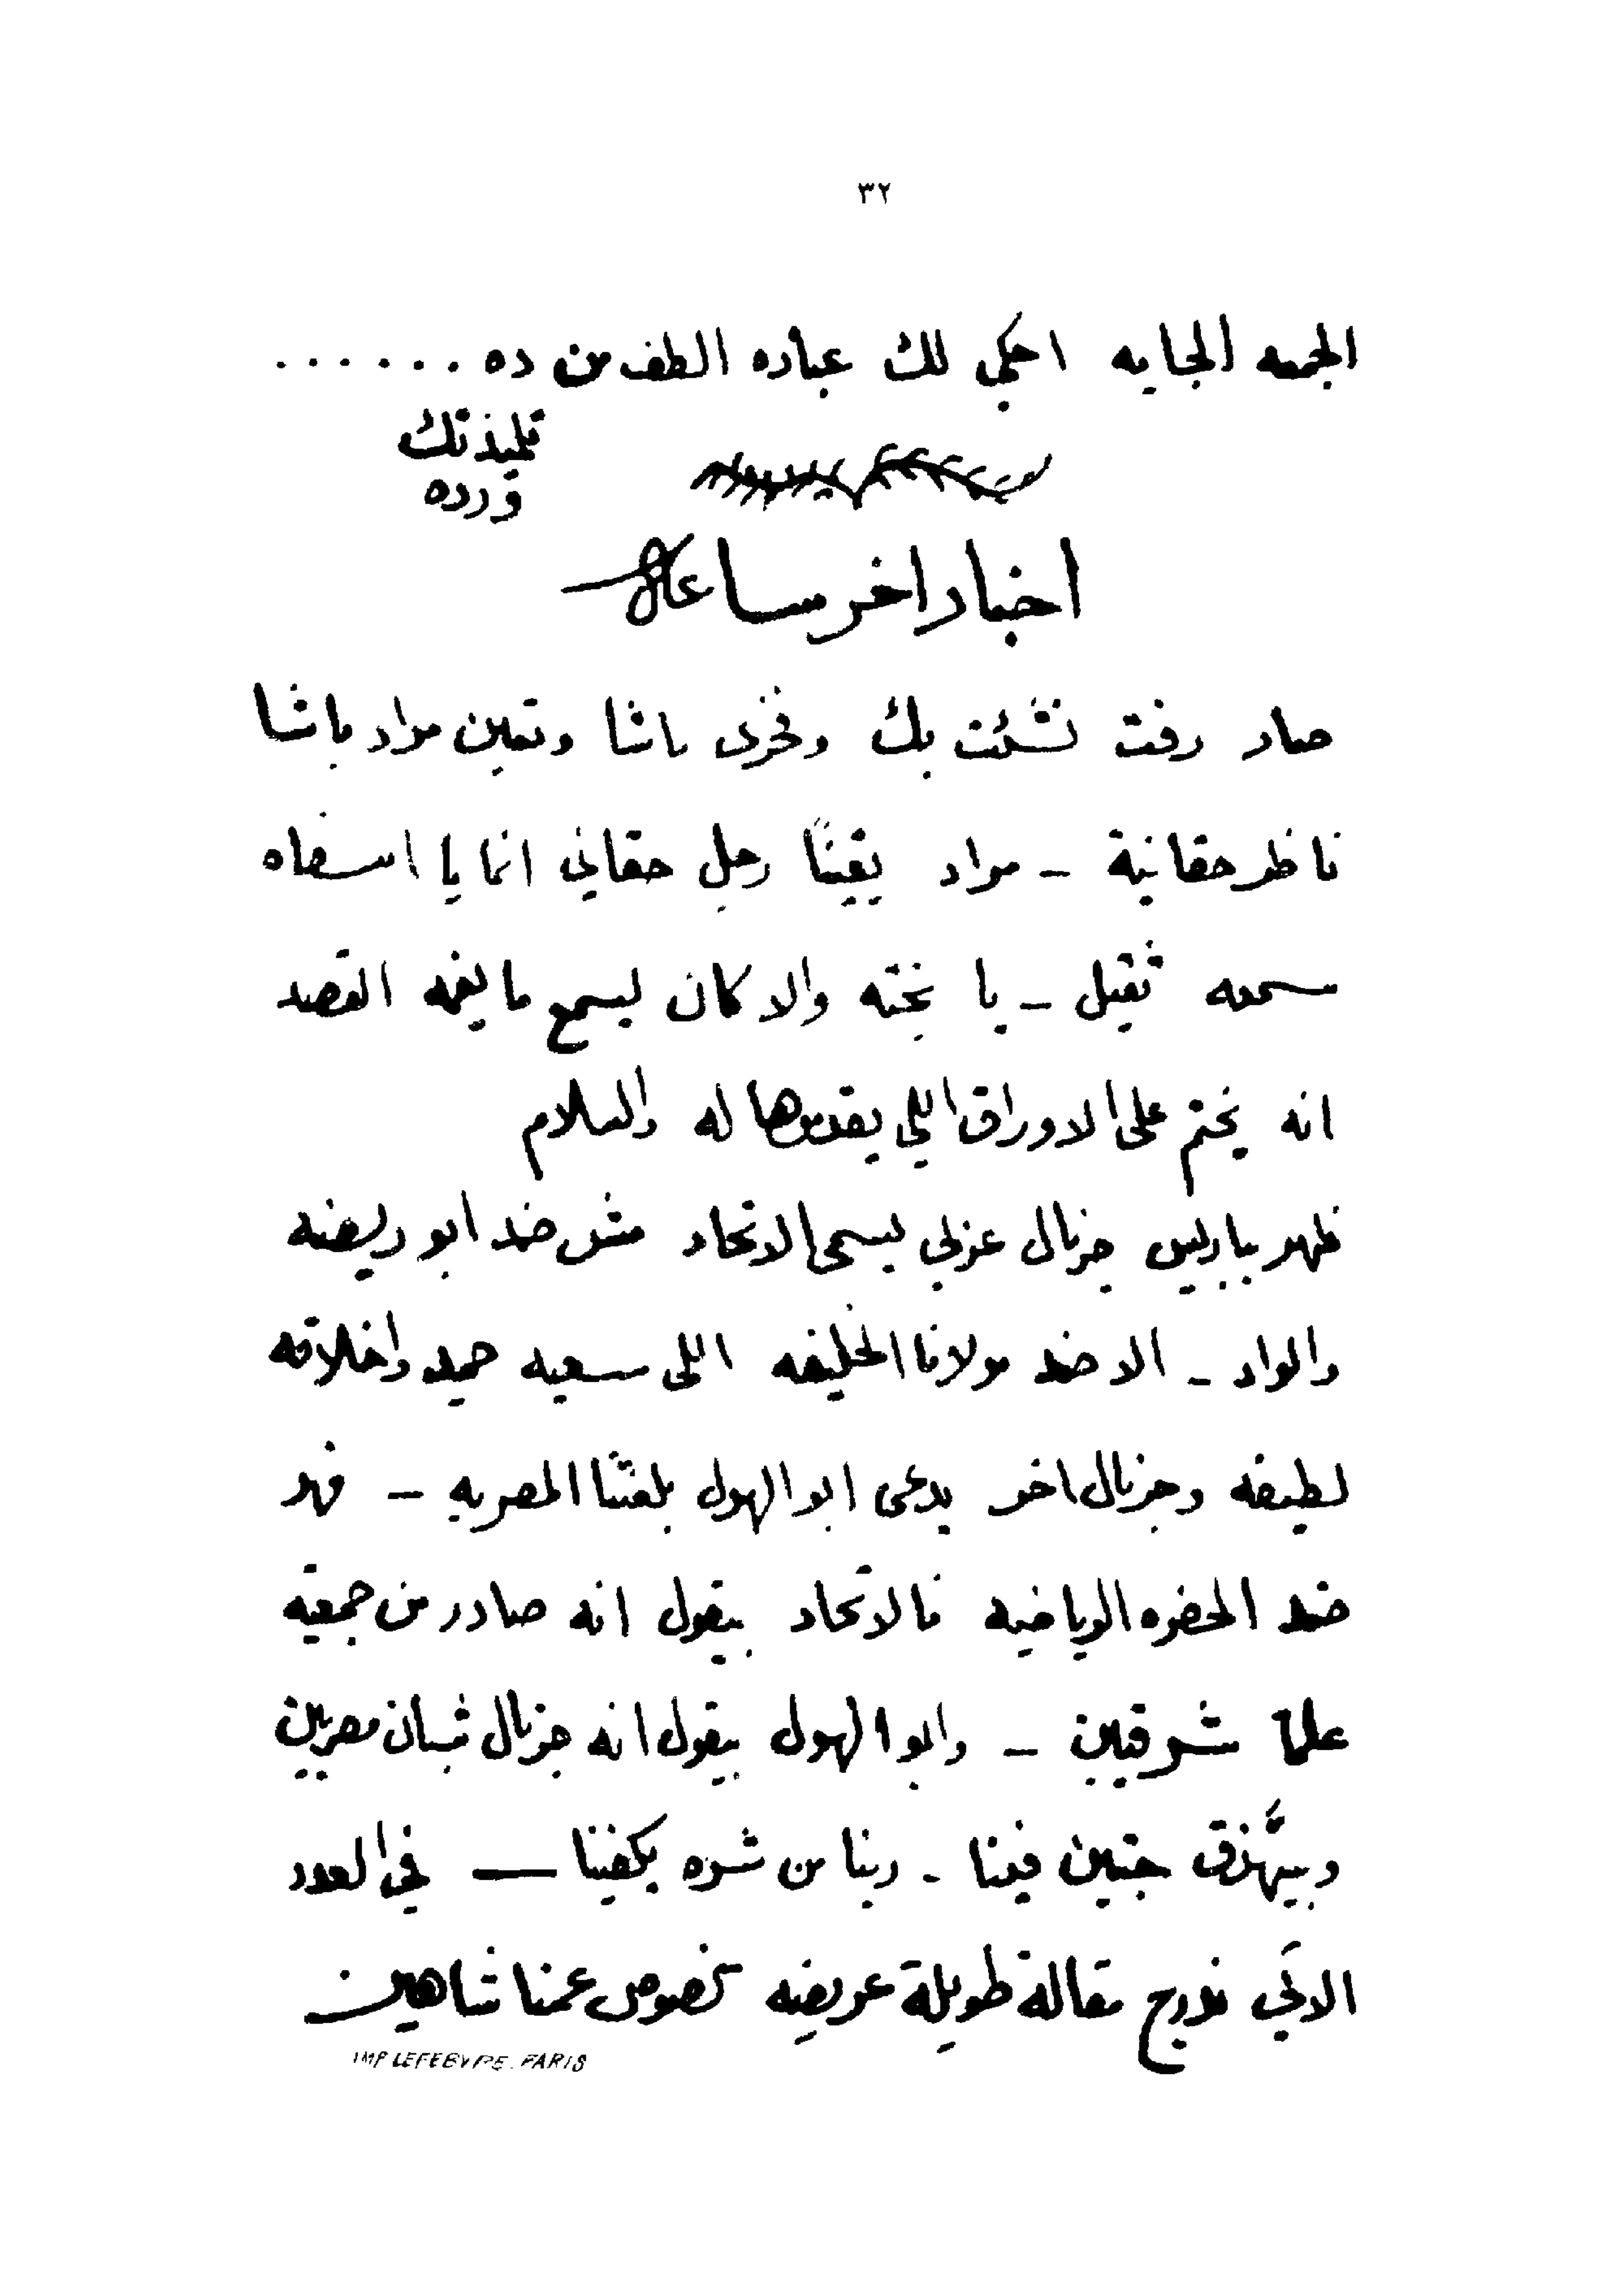 ٣٢
الجمعه الجايه احكي لك عباره الطف من ده . . . . . . .
تلميذتك
ورده
اخبار اخر ساعه
صار رفت نشئت بك وفخرى باشا وتعين مراد باشا
ناظر حقانية - مراد يقينًا رجل حقاني انما يا اسفاه
سمعه ثقيل - يا بخته والا كان يسمع ما يفهم القصد
انه يختم على الاوراق اللي يقدموها له والسلام
ظهر بباريس جرنال عربي يسمى الاتحاد مش ضد ابو ريضه
والواد - الا ضد مولانا الخليفه اللى سعيه حميد واخلاقه
لطيفه وجرنال اخر يدعى ابو الهول بلغتنا المصريه - فهو
ضد الحضره الرياضيه فالاتحاد بيقول انه صادر من جمعية
علما شرقيين - وابو الهول بيقول انه جرنال شبان مصريين
وبيهزق حبتين فينا - ربنا من شره يكفينا — في العدد
الاتي ندرج مقالة طويلة عريضه بخصوص عمنا شاهين
IMP LEFEBVRE. PARIS